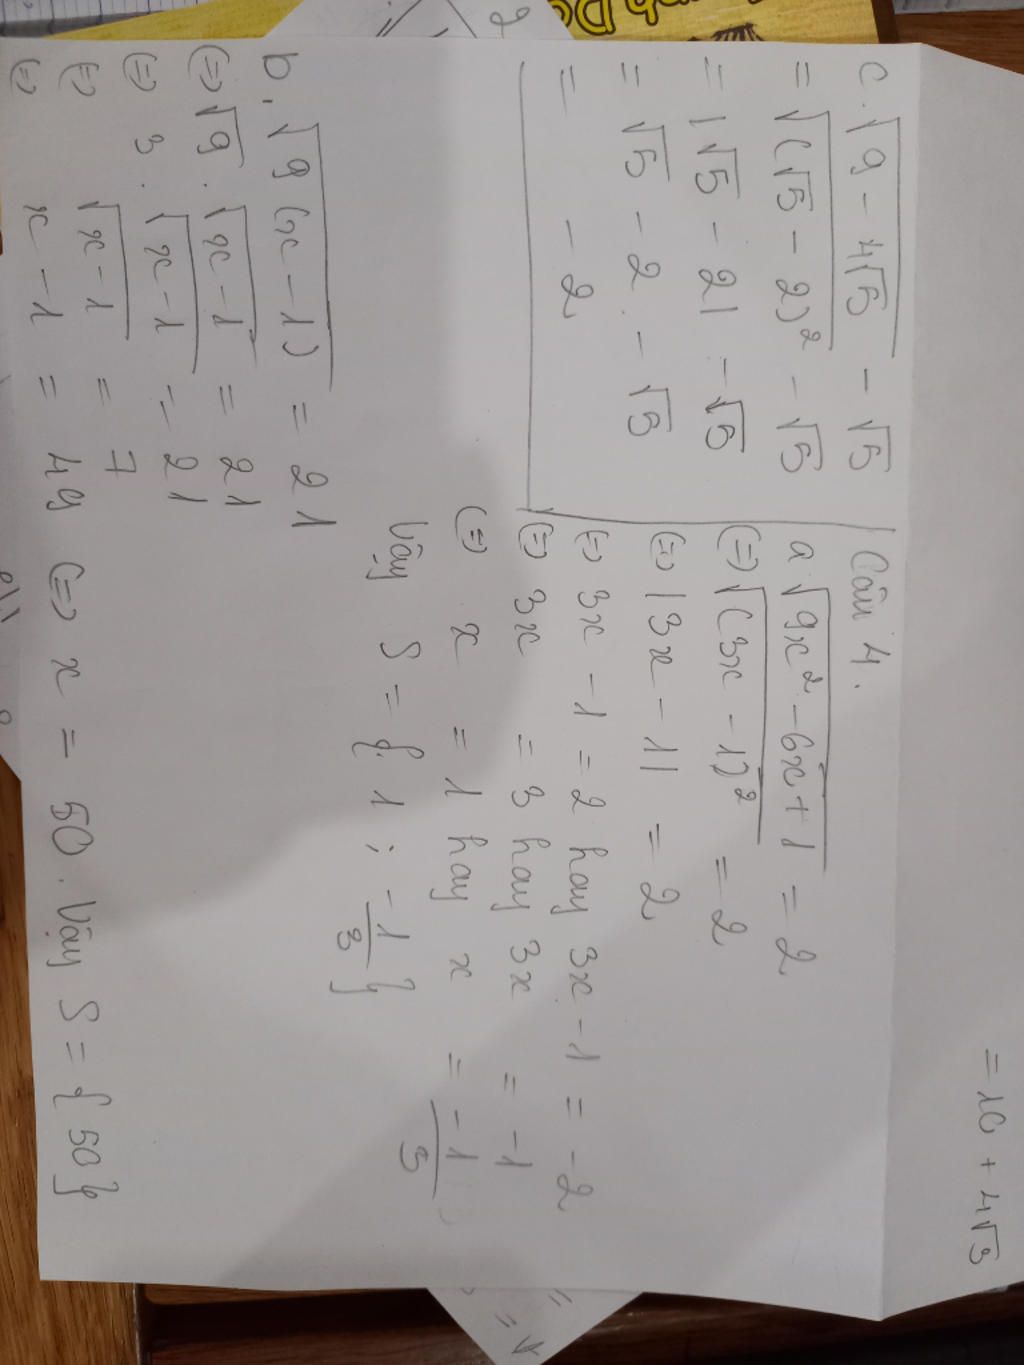 = 10 + 4√3
c. √(9 - 4√5) - √5
= √((√5 - 2)²) - √5
= |√5 - 2| - √5
= √5 - 2 - √5
= - 2
Câu 4.
a √(9x² - 6x + 1) = 2
(=) √((3x - 1)²) = 2
(=) |3x - 1| = 2
(=) 3x - 1 = 2 hay 3x - 1 = -2
(=) 3x = 3 hay 3x = -1
(=) x = 1 hay x = -1/3
Vậy S = { 1 ; -1/3 }
b. √(9(x - 1)) = 21
(=) √9 . √(x - 1) = 21
(=) 3 . √(x - 1) = 21
(=) √(x - 1) = 7
(=) x - 1 = 49 (=) x = 50. Vậy S = { 50 }